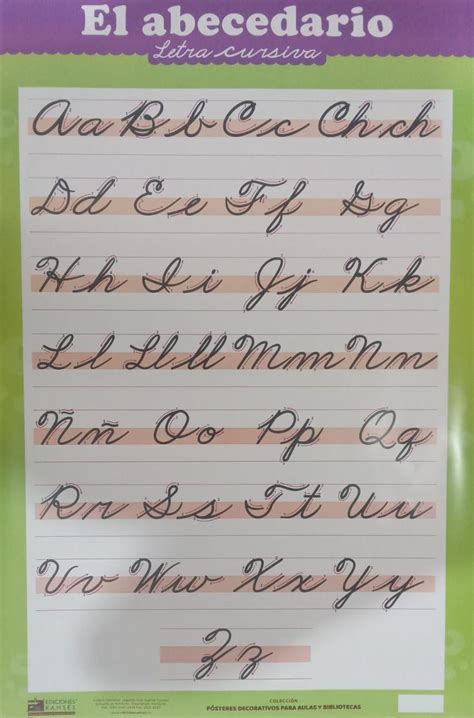 El abecedario
Letra cursiva
Aa Bb Cc Ch ch
Dd Ee Ff Gg
Hh Ii Jj Kk
Ll Ll ll Mm Nn
Ññ Oo Pp Qq
Rr Ss Tt Uu
Vv Ww Xx Yy
Zz
EDICIONES
RAMSÉS
COLECCIÓN
PÓSTERES DECORATIVOS PARA AULAS Y BIBLIOTECAS